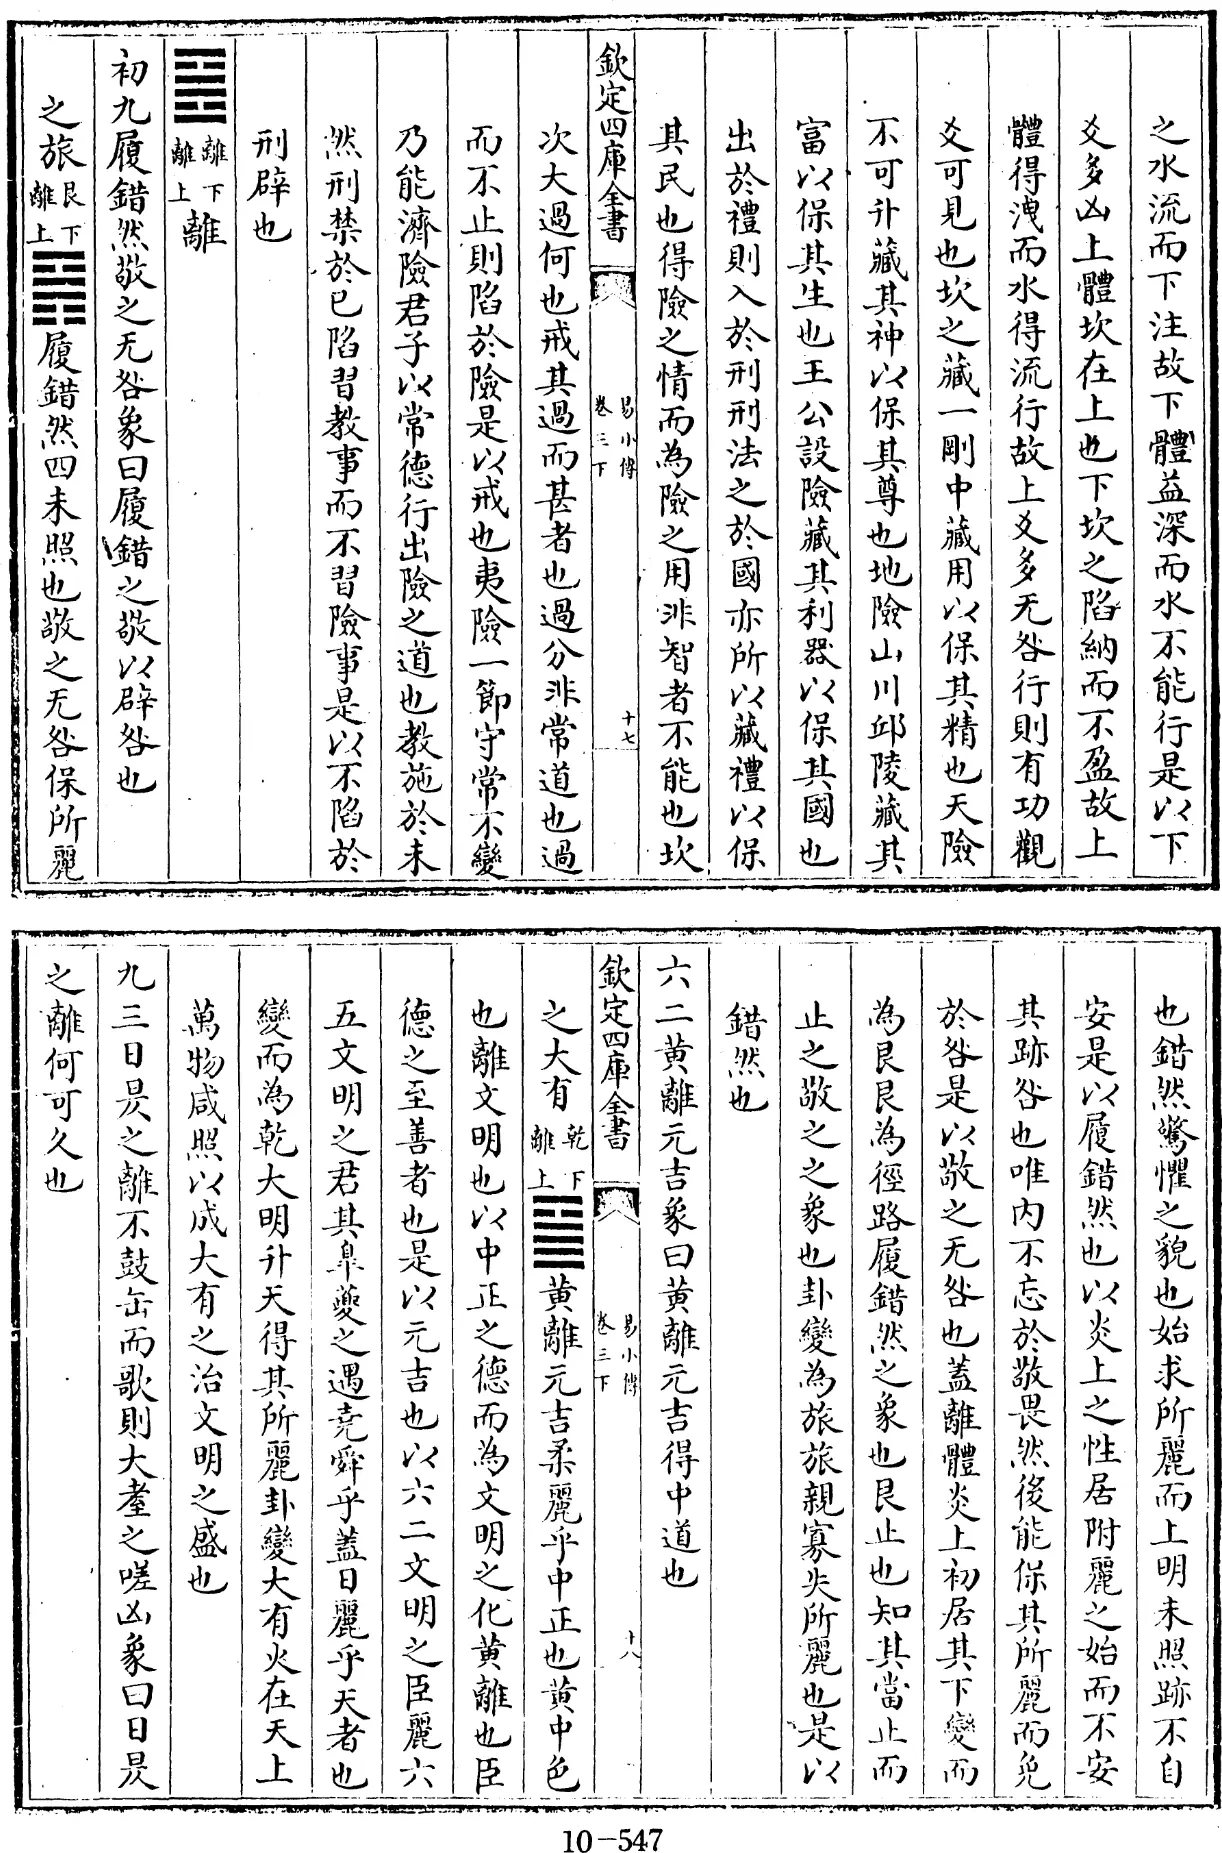 之水流而下注故下體益深而水不能行是以下
爻多凶上體坎在上也下坎之陷納而不盈故上
體得洩而水得流行故上爻多无咎行則有功觀
爻可見也坎之藏一剛中藏用以保其精也天險
不可升藏其神以保其尊也地險山川邱陵藏其
富以保其生也王公設險藏其利器以保其國也
出於禮則入於刑刑法之於國亦所以藏禮以保
其民也得險之情而為險之用非智者不能也坎
欽定四庫全書
易小傳
卷三下
十七
次大過何也戒其過而甚者也過分非常道也過
而不止則陷於險是以戒也夷險一節守常不變
乃能濟險君子以常德行出險之道也教施於未
然刑禁於已陷習教事而不習險事是以不陷於
刑辟也
䷝離下離上離
初九履錯然敬之无咎象曰履錯之敬以辟咎也
之旅艮下離上䷷履錯然四未照也敬之无咎保所麗
也錯然驚懼之貌也始求所麗而上明未照跡不自
安是以履錯然也以炎上之性居附麗之始而不安
其跡咎也唯內不忘於敬畏然後能保其所麗而免
於咎是以敬之无咎也蓋離體炎上初居其下變而
為艮艮為徑路履錯然之象也艮止也知其當止而
止之敬之之象也卦變為旅旅親寡失所麗也是以
錯然也
六二黃離元吉象曰黃離元吉得中道也
欽定四庫全書
易小傳
卷三下
十八
之大有乾下離上䷍黃離元吉柔麗乎中正也黃中色
也離文明也以中正之德而為文明之化黃離也臣
德之至善者也是以元吉也以六二文明之臣麗六
五文明之君其臯夔之遇堯舜乎蓋日麗乎天者也
變而為乾大明升天得其所麗卦變大有火在天上
萬物咸照以成大有之治文明之盛也
九三日昃之離不鼓缶而歌則大耋之嗟凶象曰日昃
之離何可久也
10-547